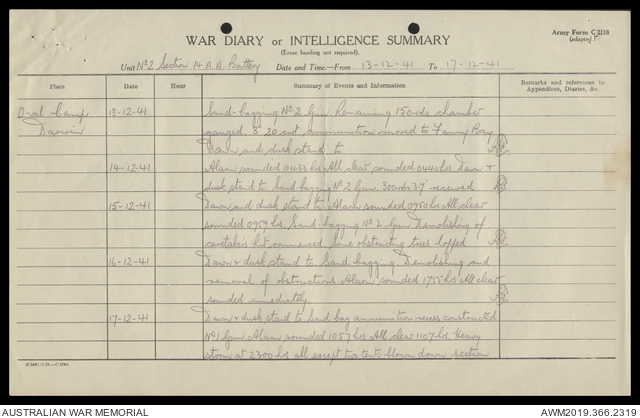 Army Form C 2118
(adapted)
WAR DIARY or INTELLIGENCE SUMMARY
(Erase heading not required).
Unit Nº 2 Section 14 A.A. Battery Date and Time—From 13-12-41 To 17-12-41
Place Date Hour Summary of Events and Information Remarks and references to Appendices, Diaries, &c.
Oval Camp 13-12-41 Sand-bagging Nº 2 Gun Remaining 150 rds chamber
Darwin gauged 3" 20 cwt ammunition moved to Fanny Bay
Dawn and dusk stand to
14-12-41 Alarm sounded 0433 hrs All clear sounded 0440 hrs Dawn +
dusk stand to Sand bagging Nº 2 Gun. 300 rds 3.7" received
15-12-41 Dawn and dusk stand to Alarm sounded 0950 hrs All clear
sounded 0959 hrs. Sand-bagging Nº 2 Gun Demolishing of
caretakers hut commenced. Some obstructing trees lopped
16-12-41 Dawn + dusk stand to Sand bagging. Demolishing and
removal of obstructions Alarm sounded 1755 hrs All clear
sounded immediately
17-12-41 Dawn + dusk stand to Sand bag ammunition recess constructed
Nº 1 Gun Alarm sounded 1057 hrs All clear 1107 hrs Heavy
storm at 2300 hrs all except two tents blown down section
AUSTRALIAN WAR MEMORIAL AWM2019.366.2319